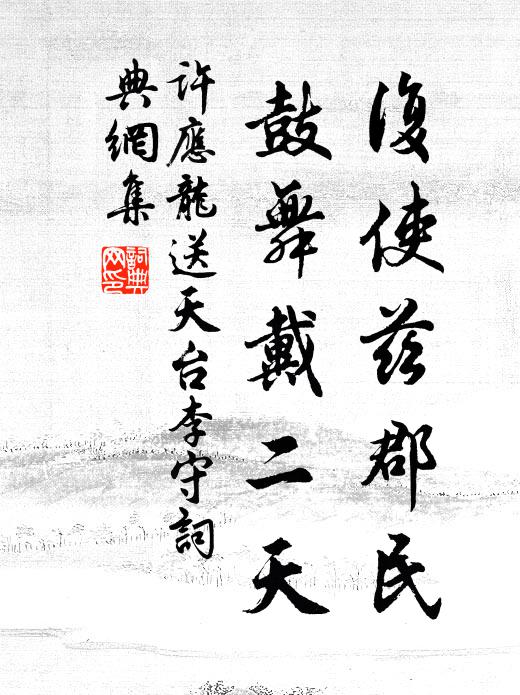 復使茲郡民
鼓舞戴二天
許應龍送天台李守詞
典網集
詞典網印